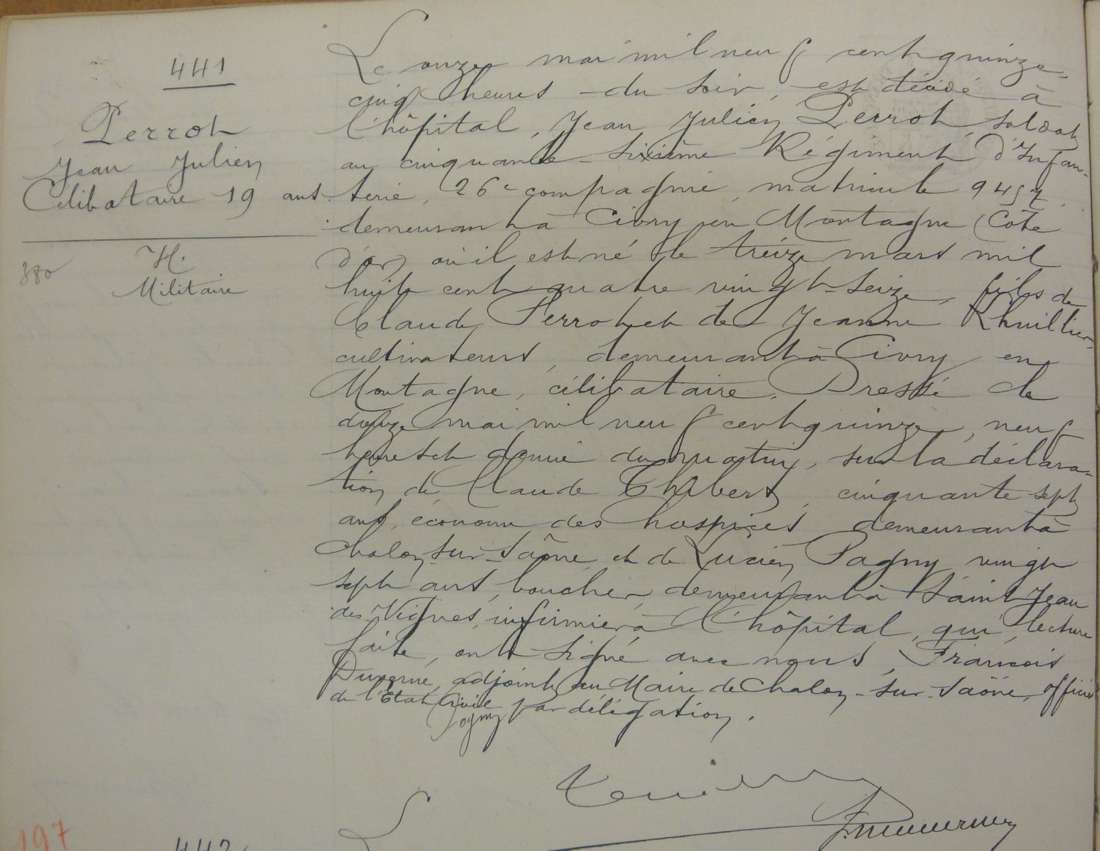 441
Perrot
Jean Julien
Célibataire 19 ans
H.
Militaire
380
Le onze mai mil neuf cent quinze,
cinq heures du soir, est décédé à
l'hôpital, Jean Julien Perrot, soldat
au cinquante-sixième Régiment d'Infan-
terie, 26e compagnie, matricule
demeurant à Civry en Montagne (Côte
d'or) où il est né le treize mars mil
huit cent quatre vingt-seize, fils de
Claude Perrot et de Jeanne Rhuillier,
cultivateurs, demeurant à Civry en
Montagne, célibataire. Dressé le
douze mai mil neuf cent quinze, neuf
heures et demie du matin, sur la déclara-
tion de Claude Thibert, cinquante sept
ans, économe des hospices, demeurant à
Chalon-sur-Saône et de Lucien Pagny vingt
sept ans, boucher, demeurant à Saint Jean
des Vignes, infirmier à l'hôpital, qui, lecture
faite, ont signé avec nous, François
adjoint au Maire de Chalon-sur-Saône, officier
de l'Etat Civil par délégation.
Pagny
197
442
L